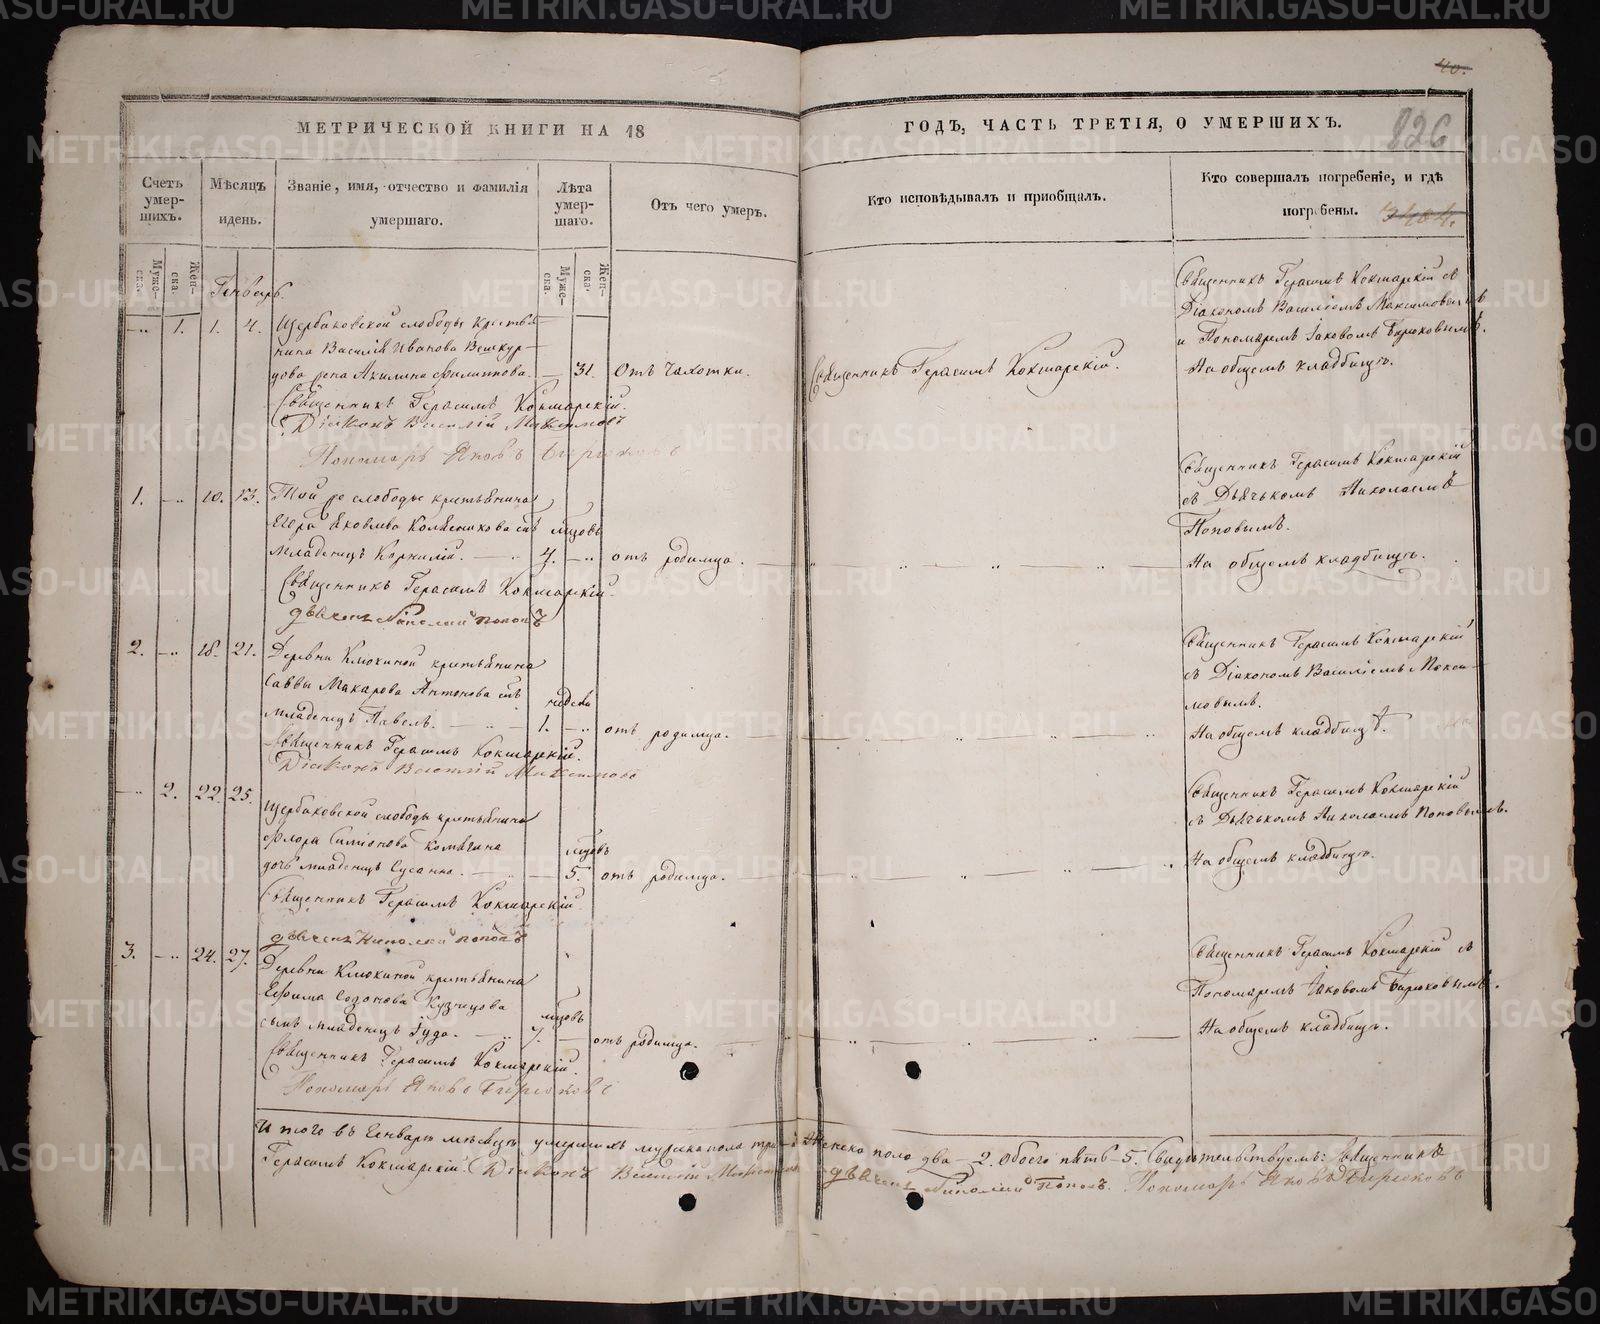 40.
МЕТРИЧЕСКОЙ КНИГИ НА 18
ГОДЪ, ЧАСТЬ ТРЕТІЯ, О УМЕРШИХЪ.
826
Счетъ умер-шихъ.
Мѣсяцъ и день.
Званіе, имя, отчество и фамилія умершаго.
Лѣта умер-шаго.
Отъ чего умеръ.
Кто исповѣдывалъ и пріобщалъ.
Кто совершалъ погребеніе, и гдѣ погребены.
Муже-ска.
Жен-ска.
Муже-ска.
Жен-ска.
Генварь.
1. 1. 4. Щербаковской слободы крестья-
нина Василія Иванова Вешкур-
дова жена Акилина Филиппова. — 31. Отъ чахотки.
Священникъ Герасимъ Кокшарскій.
Священникъ Герасимъ Кокшарскій съ
Діакономъ Василіемъ Максимовымъ
и Пономаремъ Іаковомъ Бирюковымъ.
На общемъ кладбищѣ.
Священникъ Герасимъ Кокшарскій.
Діаконъ Василій Максимовъ
Пономарь Яковъ Бирюковъ
1. 10. 13. Той же слободы крестьянина
Егора Яковлева Колѣсникова сынъ мѣсяцовъ
младенецъ Корнилій. 7. отъ родимца.
Священникъ Герасимъ Кокшарскій
съ Дьячькомъ Николаемъ
Поповымъ.
На общемъ кладбищѣ.
Священникъ Герасимъ Кокшарскій.
дьячекъ Николай Поповъ
2. 18. 21. Деревни Клюкиной крестьянина
Саввы Макарова Антонова сынъ недѣль
младенецъ Павелъ. 1. отъ родимца.
Священникъ Герасимъ Кокшарскій
съ Діакономъ Василіемъ Макси-
мовымъ.
На общемъ кладбищѣ.
Священникъ Герасимъ Кокшарскій.
Діаконъ Василій Максимовъ
2. 22. 25. Щербаковской слободы крестьянина
Флора Симіонова дочь младенецъ Сусанна. 5. отъ родимца.
Священникъ Герасимъ Кокшарскій
съ Дьячькомъ Николаемъ Поповымъ.
На общемъ кладбищѣ.
Священникъ Герасимъ Кокшарскій.
дьячекъ Николай Поповъ
3. 24. 27. Деревни Клюкиной крестьянина
Ефима Созонова Кузнецова
сынъ младенецъ Іуда. 7. отъ родимца.
Священникъ Герасимъ Кокшарскій съ
Пономаремъ Іаковомъ Бирюковымъ.
На общемъ кладбищѣ.
Священникъ Герасимъ Кокшарскій.
Пономарь Яковъ Бирюковъ
Итого въ Генварѣ мѣсяцѣ умершихъ мужска пола три — 3 Женска пола два — 2. Обоего пять — 5. Свидѣтельствуемъ: Священникъ
Герасимъ Кокшарскій. Діаконъ Василій Максимовъ дьячекъ Николай Поповъ. Пономарь Яковъ Бирюковъ
METRIKI.GASO-URAL.RU